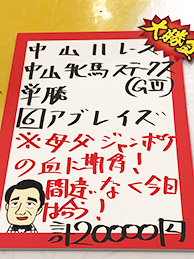 大勝負
中山11レース
中山牝馬ステークス
(GⅢ)
単勝
⑥アブレイズ
※母父ジャンポケ
の血に期待!
間違いなく今日
は合う!
120000円